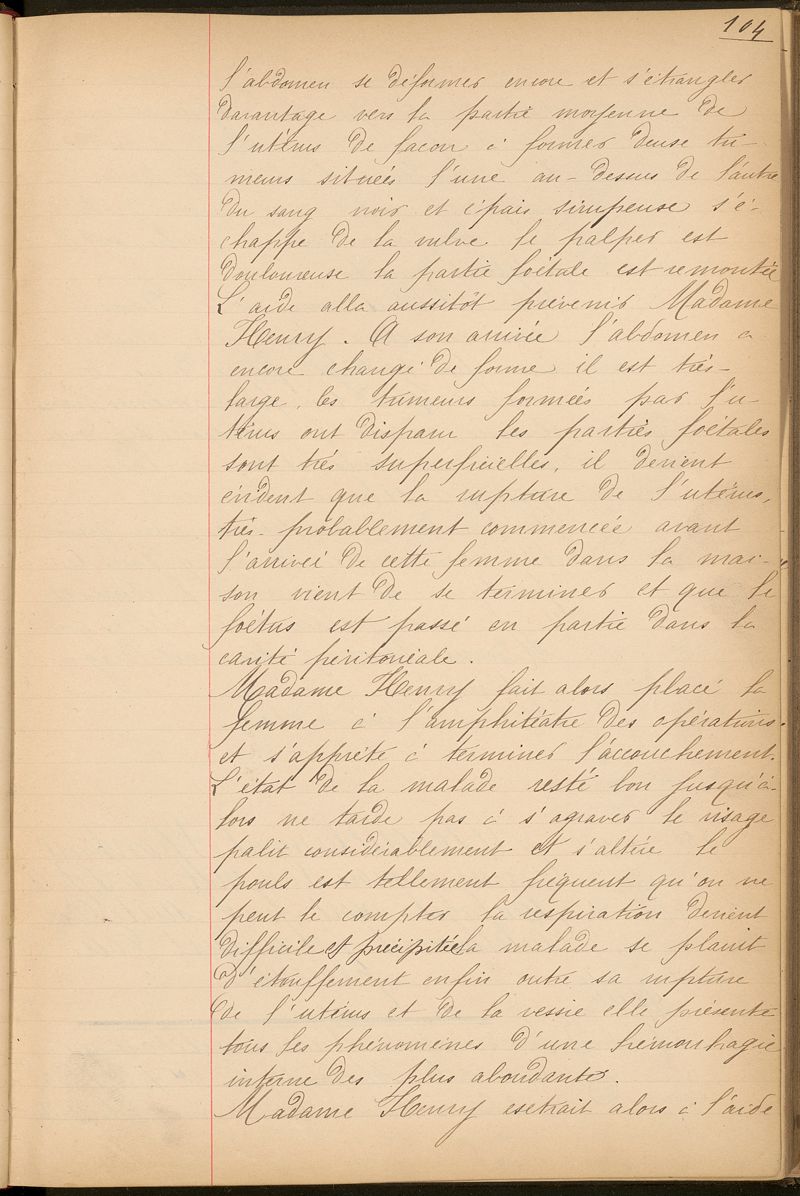 104
l'abdomen se déformer encore et s'étrangler
davantage vers la partie moyenne de
l'utérus de façon à former deuse tu-
meurs situées l'une au-dessus de l'autre
Du sang noir et épais sirupeuse s'é-
chappe de la vulve le palper est
douloureuse la partie foétale est remontée
L'aide alla aussitôt prévenir Madame
Henry. A son arrivée l'abdomen a
encore changé de forme il est très-
large, les tumeurs formées par l'u-
térus ont disparu les parties foétales
sont très superficielles, il devient
évident que la rupture de l'utérus,
très-probablement commencée avant
l'arrivée de cette femme dans la mai-
son vient de se terminer et que le
foétus est passé en partie dans la
cavité péritonéale.
Madame Henry fait alors placé la
femme à l'amphitéatre des opérations.
et s'apprête à terminer l'accouchement.
L'état de la malade resté bon jusqu'a-
lors ne tarde pas à s'agraver le visage
palit considérablement et s'altère le
pouls est tellement fréquent qu'on ne
peut le compter la respiration devient
difficile et précipitée la malade se plaint
d'étouffement enfin outre sa rupture
de l'utérus et de la vessie elle présente
tous les phénomènes d'une hémorhagie
interne des plus abondante.
Madame Henry esctrait alors à l'aide